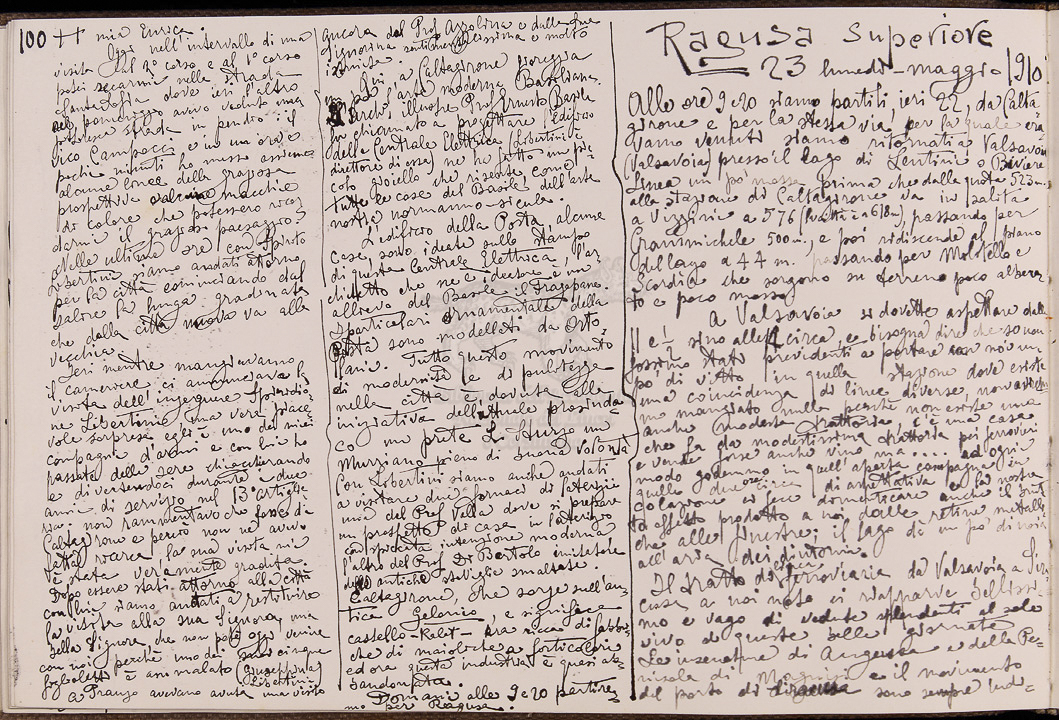 100
mia Enrica.
Oggi nell'intervallo di una
visita dal 2° corso e al 1° corso
potei recarmi nella strada
dove ieri l'altro
nel pomeriggio avevo veduto una
strada in pendio: il
vico Campocci e in un'ora e
pochi minuti ho messo assieme
alcune linee della graziosa
prospettiva e alcune macchie
di colore che potessero ricor
darmi il grazioso paesaggio.
Nelle ultime ore con
Libertini siamo andati attorno
per la città cominciando dal
salire la lunga gradinata
che dalla città nuova va alla
vecchia.
Ieri mentre mangiavamo
il cameriere ci annunciava la
visita dell'ingegnere Spiridio
ne Libertini, una vera piace
vole sorpresa egli è uno dei miei
compagni d'armi e con lui ho
passate delle sere chiaccherando
e divertendoci durante i due
anni di servizio nel 13° artiglie
ria. non rammentavo che fosse di
Caltagirone e perciò non ne avevo
fatto ricerca. La sua visita mi
è stata veramente gradita.
Dopo essere stati attorno alla città
con lui siamo andati a restituire
la visita alla sua Signora, una
bella Signora, che non potè oggi venire
con noi perchè uno dei suoi cinque
figlioletti è ammalato (Giuseppina
Libertini)
a Pranzo avevamo avuta una visita
ancora dal Prof Azzolina e dalla sua
Signorina sentimentalissima e molto
istruita.
Qui a Caltagirone
un po' l'arte moderna Basiliana.
L'Arch. illustre Prof Ernesto Basile
fu chiamato a progettare l'edificio
della Centrale Elettrica (Libertini è
direttore di essa) ne ha fatto un pic
colo gioiello che risente come
tutte le cose del Basile dell'arte
nostra normanno-sicula.
L'edificio della Posta, alcune
case, sono ideate sullo stampo
di questa Centrale Elettrica, l'Ar
chitetto che ne è autore è un
allievo del Basile il Fragapane
I particolari ornamentali della
Posta sono modellati da Orto
lani. Tutto questo movimento
di modernità e di pulitezza
nella città è dovuta alla
iniziativa dell'attuale prosinda
co un prete Lo Sturzo un
Murriano pieno di buona volontà
Con Libertini siamo anche andati
a visitare due fornaci di laterizie
una del Prof Vella dove si prepara
un prospetto di casa in laterizio
con spiccata intenzione moderna
l'altro del Prof Di Bartolo imitatore
delle antiche stoviglie smaltate.
Caltagirone, che sorge sull'an
tica Gelonio, e significa
castello - Kalat - era ricca di fabbri
che di maioliche e
ed ora questa industria è quasi ab
bandonata.
Domani alle 9 e 20 partire
mo per Ragusa.
Ragusa Superiore
23 lunedì - maggio - 1910
Alle ore 9 e 20 siamo partiti ieri 22, da Calta
girone e per la stessa via, per la quale era
vamo venuti siamo ritornati a Valsavoia
(Valsavoia) presso il lago di Lentini o Biviere
Linea un po' mossa prima che dalla quota 523 m
alla stazione di Caltagirone va in salita
a Vizzini a 576 (città è a 618 m), passando per
Grammichele 500 m. e poi ridiscende al piano
del lago a 44 m. passando per Militello e
Scordia che sorgono su terreno poco albera
to e poco mosso
A Valsavoia si dovette aspettare dalla
11 e ½ sino alle 2 circa, e bisogna dire che se non
fossimo stati previdenti a portare con noi un
po' di vitto in quella stazione dove esiste
una coincidenza di linee diverse, non avrem
mo mangiato nulla perchè non esiste una
anche modesta trattoria. C'è una casa
che fa da modestissima trattoria pei ferrovieri
e vende forse anche vino ma.... ad ogni
modo godemmo in quell'aperta campagna in
quelle due ore circa di aspettativa e la nostra
colazione ci fece dimenticare anche il brut
to effetto prodotto a noi dalle retine metalli
che alle finestre; il lago dà un po' di noia
all'aria dei dintorni.
Il tratto di ferroviaria da Valsavoia a Sira
cusa a noi noto ci riapparve bellissi
mo e vago di vedute splendenti al sole
vivo di queste belle giornate
Le insenature di Augusta e della Pe
nisola di Magnisi e il movimento
del porto di Siracusa sono sempre indi=